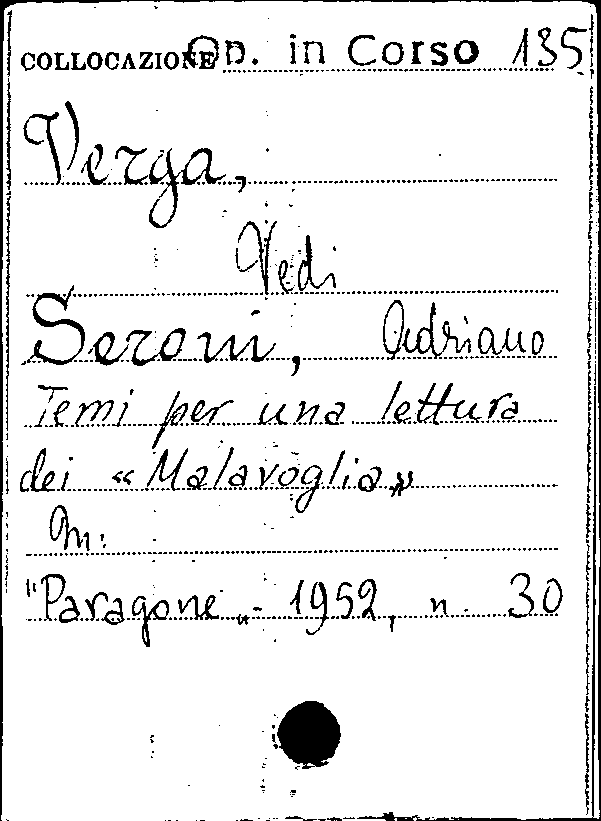 COLLOCAZIONE Op. in Corso 135
Verga,
Vedi
Seroni, Adriano
Temi per una lettura
dei «Malavoglia»
In:
"Paragone„- 1952, n. 30